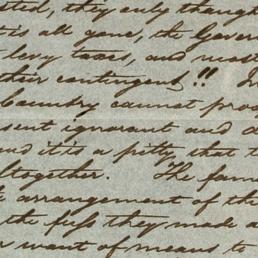 ted, they only though
it is all gone, the Gover
levy taxes, and
their contingent!! In
Country cannot pro
sent ignorant and d
and it is a pity, that t
altogether. The fam
arrangement of the
the fuss they made a
want of means to